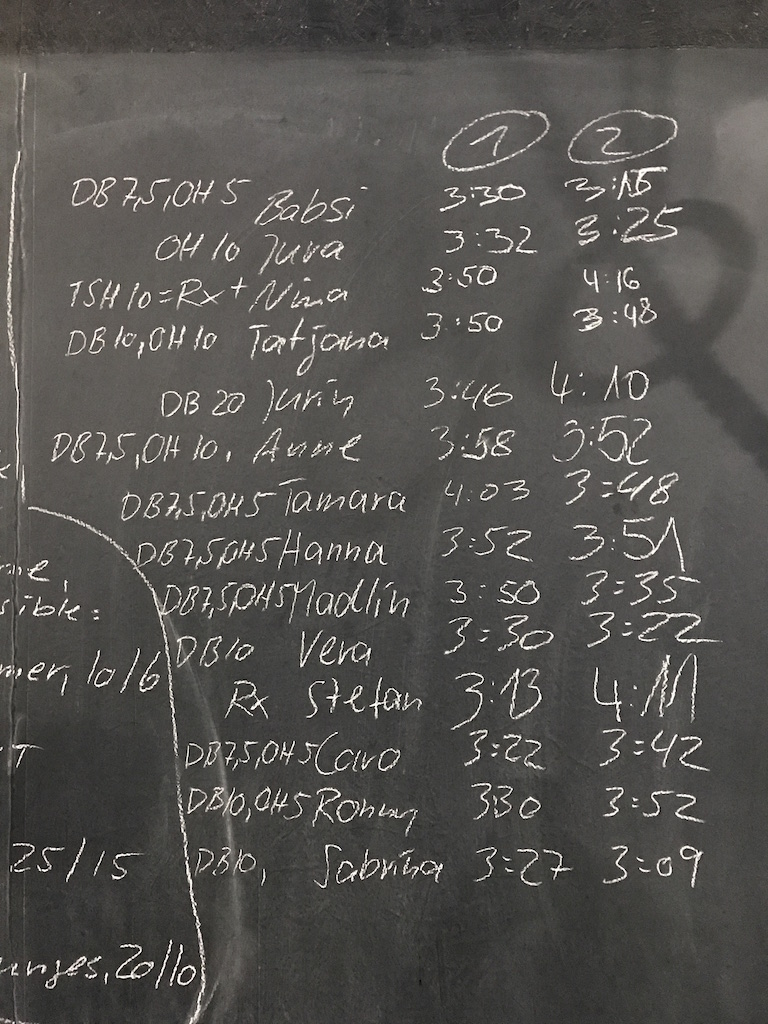 1 2
DB 7,5, OH 5 Babsi 3:30 3:15
OH 10 3:32 3:25
TSH 10 = Rx+ Nina 3:50 4:16
DB 10, OH 10 Tatjana 3:50 3:48
DB 20 3:46 4:10
DB 7,5, OH 10, Anne 3:58 3:52
DB 7,5, OH 5 Tamara 4:03 3:48
DB 7,5, OH 5 Hanna 3:52 3:51
DB 7,5, OH 5 Madlin 3:50 3:35
DB 10 Vera 3:30 3:22
Rx Stefan 3:13 4:11
DB 7,5, OH 5 Caro 3:22 3:42
DB 10, OH 5 Ronny 330 3:52
DB 10, Sabrina 3:27 3:09
sible:
10/6
T
25/15
20/10